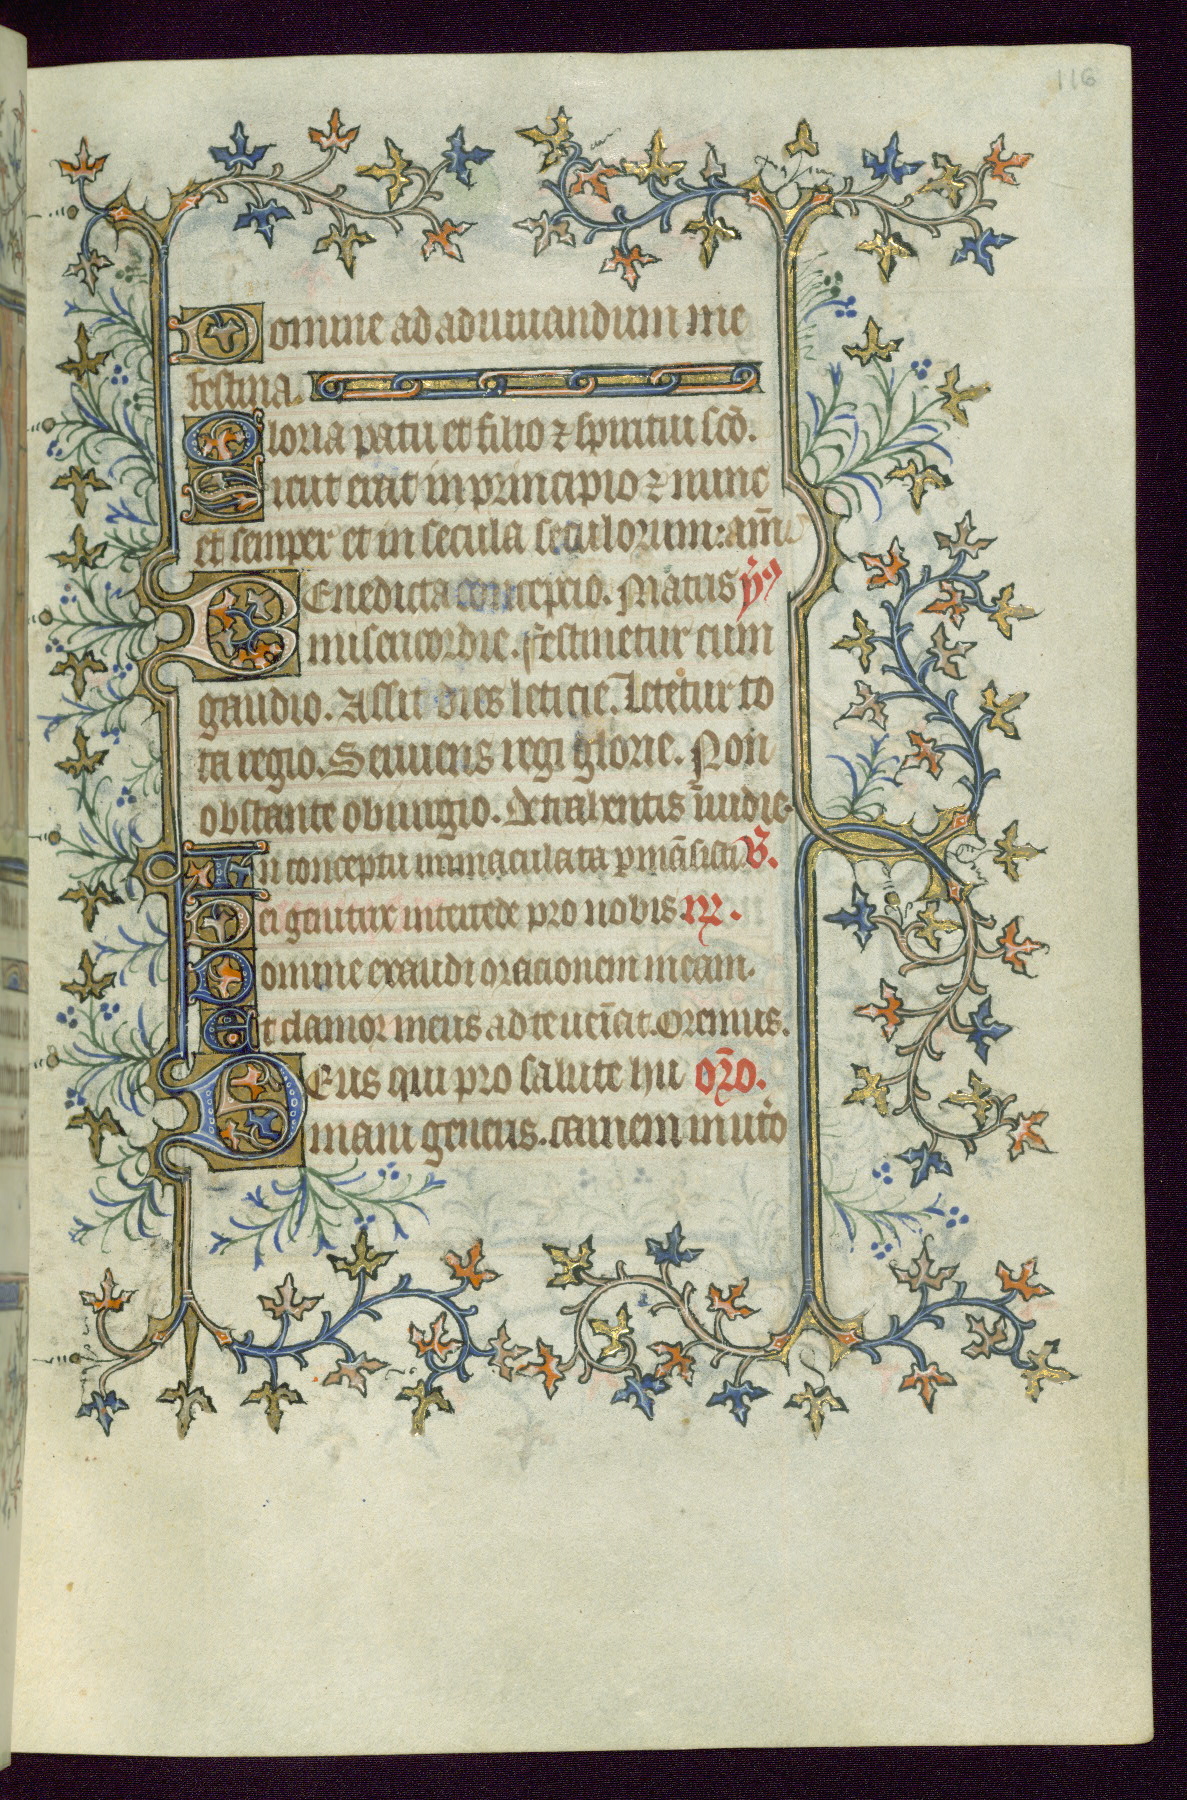 116
Domine ad adiuuandum me
festina.
Gloria patri et filio ⁊ spiritui scō.
Sicut erat in principio ⁊ nunc
et semper et in secula seculorum: am̄
Benedicta concepcio. Matris ẏ᷒
misericordie. festinetur cum
gaudio. Assit dies leticie. Letetur to
ta regio. Seruiens regi glorie. Non
obstante obiurgio. Detrahentis inuidie.
In conceptu inmaculata ꝑmāsisti V̄.
Dei genitrix intercede pro nobis R̄.
Domine exaudi oracionem meam.
Et clamor meus ad te ueīat. Oremus.
Deus qui pro salute hu or̄o.
mani generis. carnem in utō